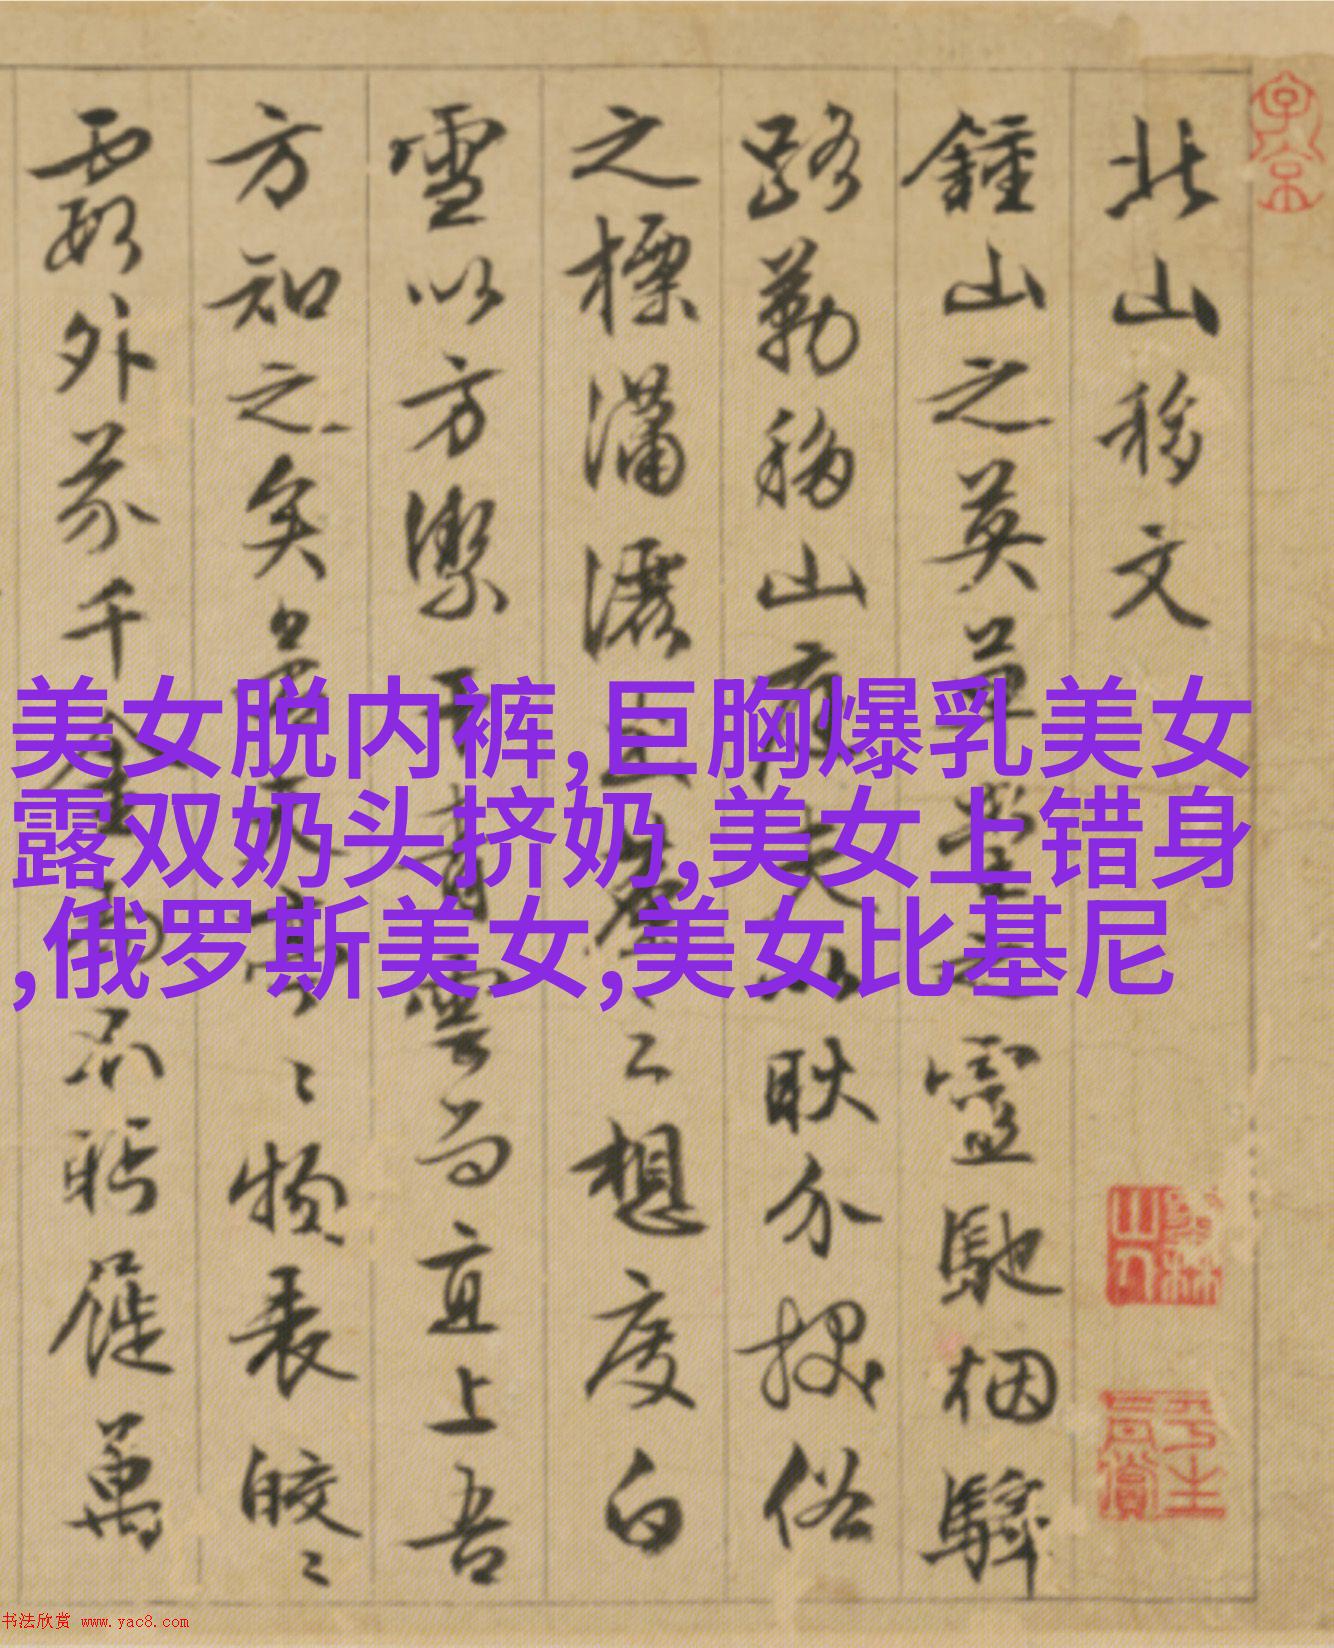 北山移文
鍾山之英草堂之靈馳烟驛
路勒移山庭夫以耿介拔俗
之標瀟灑出塵之想度白
雪以方潔干青雲而直上吾
方知之矣若其亭亭物表皎皎
霞外芥千金而不眄屣萬
美女脱内裤,巨胸爆乳美女
露双奶头挤奶,美女上错身
,俄罗斯美女,美女比基尼
书法欣赏 www.yac8.com